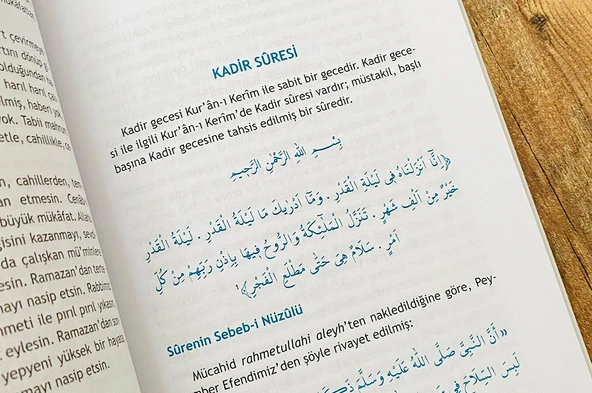 rt çevirmeye
rtını dönüp g
olduğundan ha
harıl harıl ça
elmiş, haberi yok
yok. Tabii mahrum
etle, cahillikle, ca
n, cahillerden, tem
an etmesin. Cenâb
büyük mükâfat. Allah
gisini kazanmayı, sevd
da çalışkan mü'minlere
esin. Ramazan'dan terte
mayı nasip etsin. Rabbimiz
hmeti ile pırıl pırıl yıkasın
z eylesin. Ramazan'dan son
yepyeni yüksek bir hayata
mayı nasip etsin.
KADİR SÛRESİ
Kadir gecesi Kur'ân-ı Kerîm ile sabit bir gecedir. Kadir gece-
si ile ilgili Kur'ân-ı Kerîm'de Kadir sûresi vardır; müstakil, başlı
başına Kadir gecesine tahsis edilmiş bir sûredir.
بِسْمِ اللهِ الرَّحْمٰنِ الرَّحِيمِ
﴿اِنَّا اَنْزَلْنَاهُ فِي لَيْلَةِ الْقَدْرِ . وَمَا اَدْرٰيكَ مَا لَيْلَةُ الْقَدْرِ . لَيْلَةُ الْقَدْرِ
خَيْرٌ مِنْ اَلْفِ شَهْرٍ . تَنَزَّلُ الْمَلٰٓئِكَةُ وَالرُّوحُ فِيهَا بِاِذْنِ رَبِّهِمْ مِنْ كُلِّ
اَمْرٍ . سَلَامٌ هِيَ حَتّٰى مَطْلَعِ الْفَجْرِ﴾¹
Sûrenin Sebeb-i Nüzûlü
Mücahid rahmetullahi aleyh'ten nakledildiğine göre, Pey-
mber Efendimiz'den şöyle rivayet edilmiş:
«اَنَّ النَّبِيَّ صَلَّى اللهُ عَلَيْهِ وَسَلَّمَ ذَكَرَ
لَبِسَ السِّلَاحَ فِي